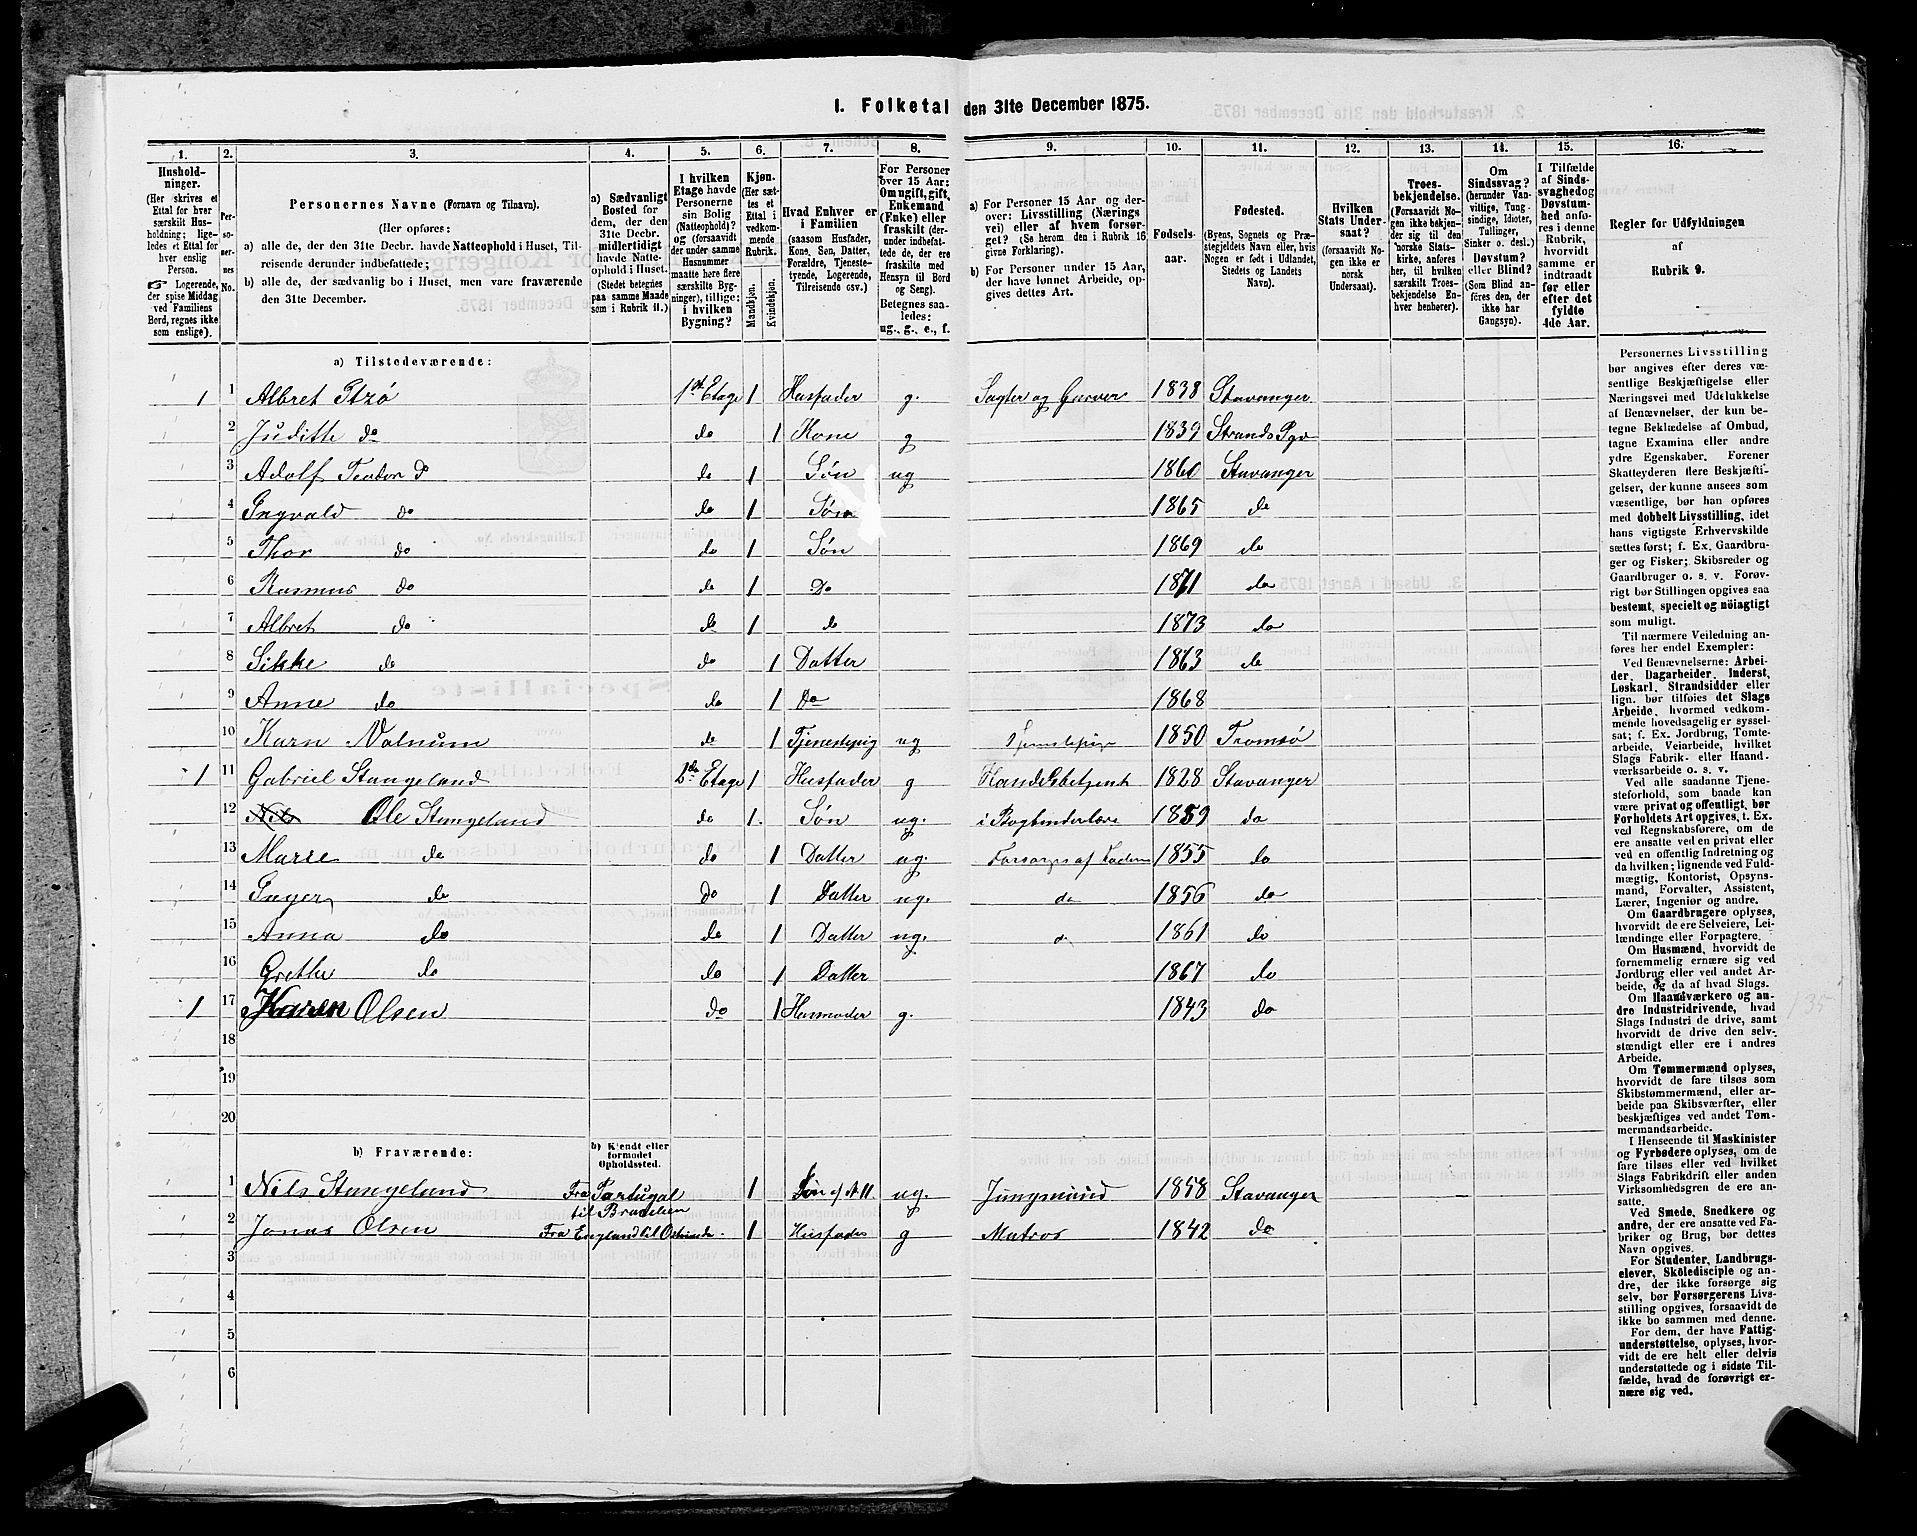 1. Folketal den 31te December 1875.
1. 2. 3. 4. 5. 6. 7. 8. 9. 10. 11. 12. 13. 14. 15. 16.
Husholdninger.
(Her skrives et
Ettal for hver
særskilt Hus-
holdning; lige-
ledes et Ettal for
hver enslig
Person.
Logerende,
der spise Middag
ved Familiens
Bord, regnes ikke
som enslige).
Personernes No.
Personernes Navne (Fornavn og Tilnavn).
(Her opføres:
a) alle de, der den 31te Decbr. havde Natteophold i Huset, Til-
reisende derunder indbefattede;
b) alle de, der sædvanlig bo i Huset, men vare fraværende
den 31te December.
a) Sædvanligt
Bosted for
dem, der den
31te Decbr.
midlertidigt
havde Natte-
ophold i Huset.
(Stedet betegnes
paa samme Maade
som i Rubrik 11.)
I hvilken
Etage havde
Personerne
sin Bolig
(Natteophold)?
og (forsaavidt
der under samme
Husnummer
maatte høre flere
særskilte Byg-
ninger), tillige:
i hvilken
Bygning?
Kjøn.
(Her sæt-
tes et
Ettal i
vedkom-
mende
Rubrik.
Mandkjøn. Kvindekjøn.
Hvad Enhver er
i Familien
(saasom Husfader,
Kone, Søn, Datter,
Forældre, Tjeneste-
tyende, Logerende,
Tilreisende osv.)
For Personer
over 15 Aar:
Om ugift, gift,
Enkemand
(Enke) eller
fraskilt (der-
under indbefat-
tede de, der ere
fraskilte med
Hensyn til Bord
og Seng).
Betegnes saa-
ledes:
ug., g., e., f.
a) For Personer 15 Aar og der-
over: Livsstilling (Nærings
vei) eller af hvem forsør-
get? (Se herom den i Rubrik 16
givne Forklaring).
b) For Personer under 15 Aar,
der have lønnet Arbeide, op-
gives dettes Art.
Fødsels-
aar.
Fødested.
(Byens, Sognets og Præ-
stegjeldets Navn eller, hvis
Nogen er født i Udlandet,
Stedets og Landets
Navn).
Hvilken
Stats Under-
saat?
(forsaavidt No-
gen ikke er
norsk
Undersaat).
Troes-
bekjendelse.
(Forsaavidt No-
gen ikke bekjen-
der sig til den
norske Stats-
kirke, anføres
her, til hvilken
særskilt Troes-
bekjendelse En-
hver henhører).
Om
Sindssvag?
(herunder Van-
vittige, Tung-
sindige, Idioter,
Tullinger,
Sinker o. desl.)
Døvstum?
eller Blind?
(Som Blind an-
føres den, der
ikke har
Gangsyn).
I Tilfælde
af Sinds-
svaghed og
Døvstum-
hed anfø-
res i denne
Rubrik,
hvorvidt
samme er
indtraadt
før eller
efter det
fyldte
4de Aar.
Regler for Udfyldningen
af
Rubrik 9.
a) Tilstedeværende:
1 1 Albret Strø 1ste Etage 1 Husfader g. Sagfør og Garver 1838 Stavanger
2 Juditte do do 1 Kone g 1839 Strands Pgd
3 Adolf Teodor do 1 Søn ug 1860 Stavanger
4 Ingvald do do 1 Søn 1865 do
5 Thor do do 1 Søn 1869 do
6 Rasmus do do 1 Do 1871 do
7 Albret do do 1 do 1873 do
8 Sikke do do 1 Datter 1863 do
9 Anne do do 1 Do 1868
10 Karn Valnum do 1 Tjenestepig ug Tjenestepige 1850 Tromsø
1 11 Gabriel Stangeland 2de Etage 1 Husfader g Handelsbetjent 1828 Stavanger
12 Nils Ole Stangeland do 1. Søn ug. i Bogbinderlære 1859 do
13 Marie do do 1 Datter ug. Forsørges af Faderen 1855 do
14 Inger do do 1 Datter ug. do 1856 do
15 Anna do do 1 Datter ug. do 1861 do
16 Grethe do do 1 Datter 1867 do
1 17 Karen Olsen do 1 Husmoder g. 1843 do
18
19
20
b) Fraværende:
b) Kjendt eller
formodet
Opholdssted.
1 Nils Stangeland Fra Portugal til Brasilien 1 Søn af No 11 ug. Jungmand 1858 Stavanger
2 Jonas Olsen Fra England til Ostinde. 1 Husfader g Matros 1842 do
3
4
5
6
Personernes Livsstilling
bør angives efter deres væ-
sentlige Beskjæftigelse eller
Næringsvei med Udelukkelse
af Benævnelser, der kun be-
tegne Beklædelse af Ombud,
tagne Examina eller andre
ydre Egenskaber. Forener
Skatteyderen flere Beskjæfti-
gelser, der kunne ansees som
væsentlige, bør han opføres
med dobbelt Livsstilling, idet
hans vigtigste Erhvervskilde
sættes først; f. Ex. Gaardbru-
ger og Fisker; Skibsreder og
Gaardbruger o. s. v. Forøv-
rigt bør Stillingen opgives saa
bestemt, specielt og nöiagtigt
som muligt.
Til nærmere Veiledning an-
føres her endel Exempler:
Ved Benævnelserne: Arbei-
der, Dagarbeider, Inderst,
Løskarl, Strandsidder eller
lign. bør tilføies det Slags
Arbeide, hvormed vedkom-
mende hovedsagelig er syssel-
sat; f. Ex. Jordbrug, Tomte-
arbeide, Veiarbeide, hvilket
Slags Fabrik- eller Haand-
værksarbeide o. s. v.
Ved alle saadanne Tjene-
steforhold, som baade kan
være privat og offentligt, bør
Forholdets Art opgives, t. Ex.
ved Regnskabsførere, om de
ere ansatte ved en privat eller
ved en offentlig Indretning og
da hvilken; lignende ved Fuld-
mægtig, Kontorist, Opsyns-
mand, Forvalter, Assistent,
Lærer, Ingeniør og andre.
Om Gaardbrugere oplyses,
hvorvidt de ere Selveiere, Lei-
lændinge eller Forpagtere.
Om Husmænd, hvorvidt de
fornemmelig ernære sig ved
Jordbrug eller ved andet Ar-
beide, og da af hvad Slags.
Om Haandværkere og an-
dre Industridrivende, hvad
Slags Industri de drive, samt
hvorvidt de drive den selv-
stændigt eller ere i andres
Arbeide.
Om Tømmermænd oplyses,
hvorvidt de fare tilsøs som
Skibstømmermænd, eller ar-
beide paa Skibsværfter, eller
beskjæftiges ved andet Tøm-
mermandsarbeide.
I Henseende til Maskinister
og Fyrbødere oplyses, om de
fare tilsøs eller ved hvilket
Slags Fabrikdrift eller anden
Virksomhedsgren de ere an-
satte.
Ved Smede, Snedkere og
andre, der ere ansatte ved Fa-
briker og Brug, bør dettes
Navn opgives.
For Studenter, Landbrugs-
elever, Skoledisciple og an-
dre, der ikke forsørge sig
selv, bør Forsørgerens Livs-
stilling opgives, forsaavidt de
ikke bo sammen med denne.
For dem, der have Fattig-
understøttelse, oplyses, hvor-
vidt de ere helt eller delvis
understøttede og i sidste Til-
fælde, hvad de forøvrigt er-
nære sig ved.
135